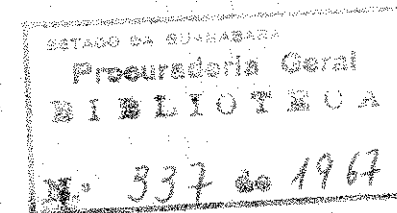 ESTADO DA GUANABARA
Procuradoria Geral
BIBLIOTECA
N.º 337 de 1967